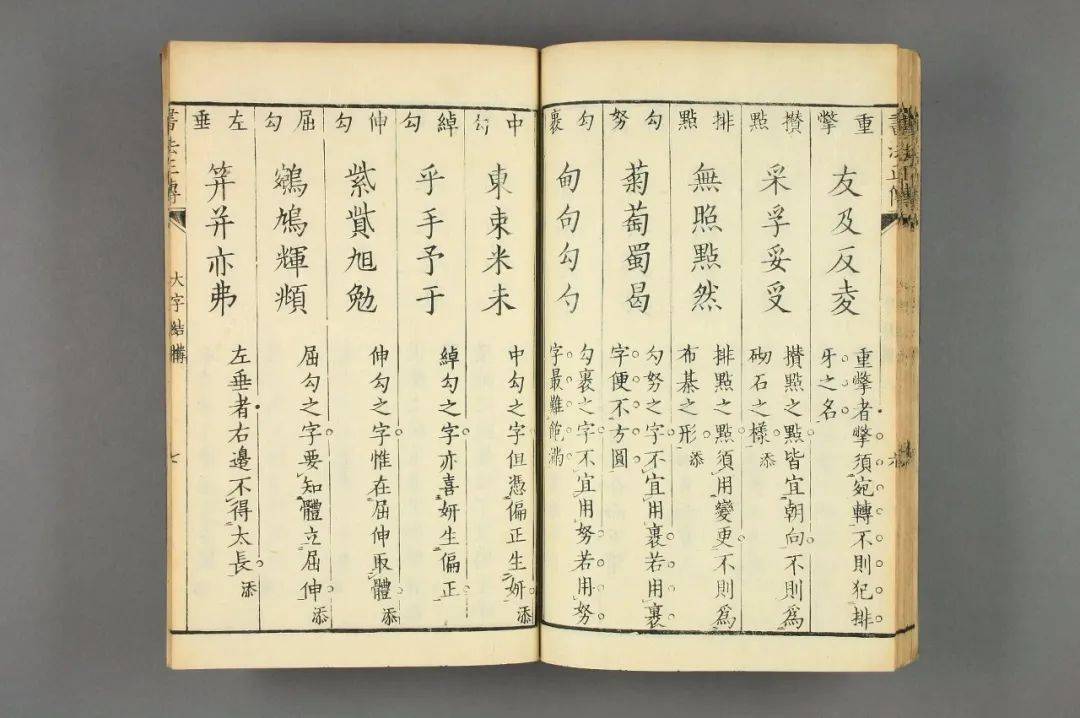 書法正傳
六
重撆
友及反夌
重撆者撆須宛轉不則犯排
牙之名
攢點
采孚妥受
攢點之點皆宜朝向不則為
砌石之樣 添
排點
無照點然
排點之點須用變更不則為
布棊之形 添
勾努
菊萄蜀曷
勾努之字不宜用裹若用裹
字便不方圓
勾裹
甸句勾勺
勾裹之字不宜用努若用努
字最難飽滿
中勾
東束米未
中勾之字但憑偏正生妍 添
綽勾
乎手予于
綽勾之字亦喜妍生偏正
伸勾
紫貲旭勉
伸勾之字惟在屈伸取體 添
屈勾
鵷鳩輝頫
屈勾之字要知體立屈伸 添
左垂
笄并亦弗
左垂者右邊不得太長 添
書法正傳
大字結
七